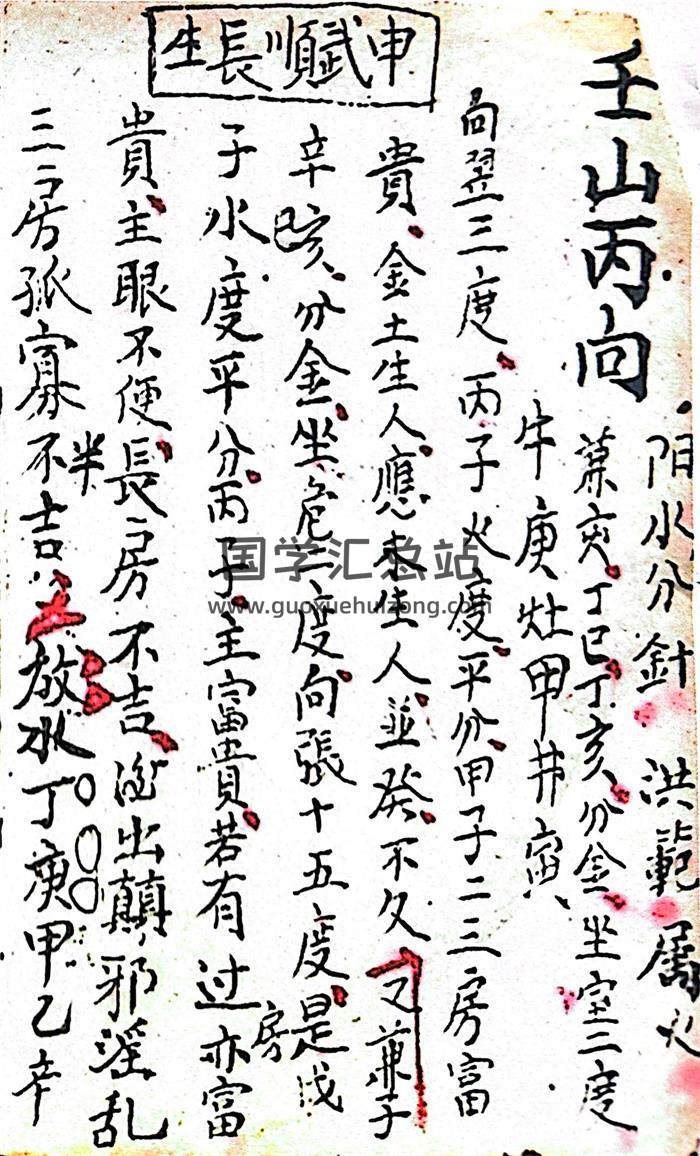 申貮順長生
壬山丙向
阳水分針 洪範属火
兼亥丁巳丁亥分金坐室二度
牛庚灶甲井寅
向翌三度丙子火度平分甲子二三房富
貴金土生人應未生人並癸不久又兼子
辛巳亥分金坐危六度向張十五度是戊
子水度平分丙子主富貴若有过房亦富
貴主眼不便長房不吉出顛邪淫乱
三房孤寡不吉半放水丁庚甲乙辛
国学汇总站
www.guoxuehuizong.com